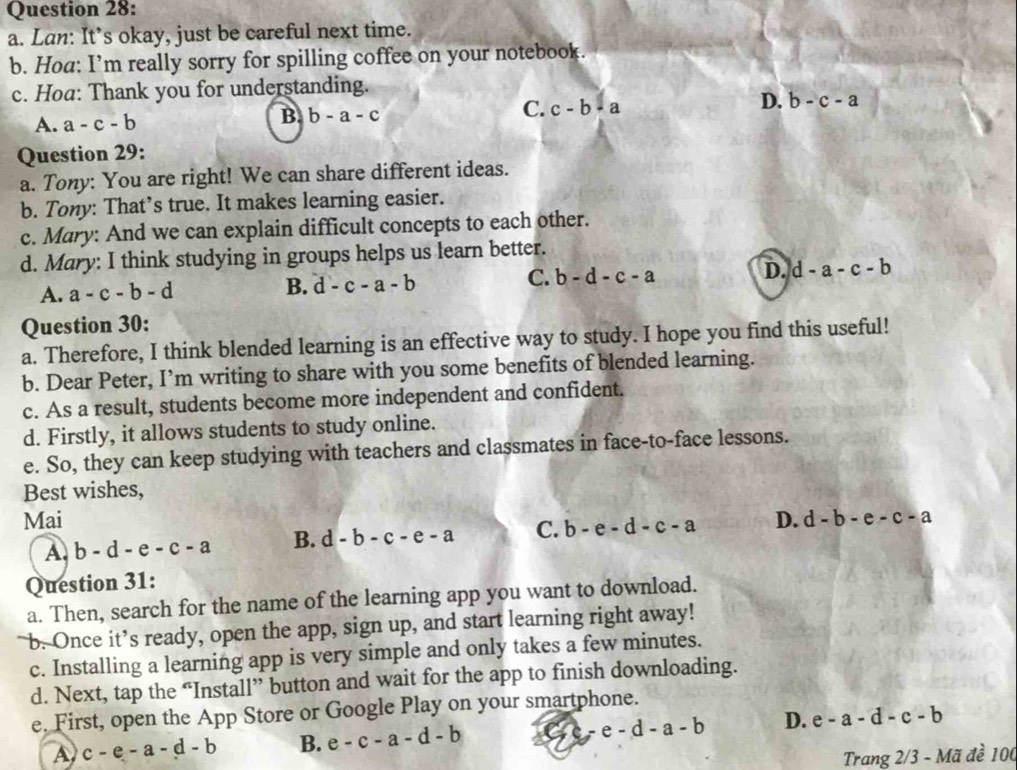 Question 28:
a. Lan: It's okay, just be careful next time.
b. Hoa: I'm really sorry for spilling coffee on your notebook.
c. Hoa: Thank you for understanding.
A. a - c - b B. b - a - c C. c - b - a D. b - c - a
Question 29:
a. Tony: You are right! We can share different ideas.
b. Tony: That's true. It makes learning easier.
c. Mary: And we can explain difficult concepts to each other.
d. Mary: I think studying in groups helps us learn better.
A. a - c - b - d B. d - c - a - b C. b - d - c - a D. d - a - c - b
Question 30:
a. Therefore, I think blended learning is an effective way to study. I hope you find this useful!
b. Dear Peter, I'm writing to share with you some benefits of blended learning.
c. As a result, students become more independent and confident.
d. Firstly, it allows students to study online.
e. So, they can keep studying with teachers and classmates in face-to-face lessons.
Best wishes,
Mai
A. b - d - e - c - a B. d - b - c - e - a C. b - e - d - c - a D. d - b - e - c - a
Question 31:
a. Then, search for the name of the learning app you want to download.
b. Once it's ready, open the app, sign up, and start learning right away!
c. Installing a learning app is very simple and only takes a few minutes.
d. Next, tap the “Install” button and wait for the app to finish downloading.
e. First, open the App Store or Google Play on your smartphone.
A. c - e - a - d - b B. e - c - a - d - b C. c - e - d - a - b D. e - a - d - c - b
Trang 2/3 - Mã đề 100